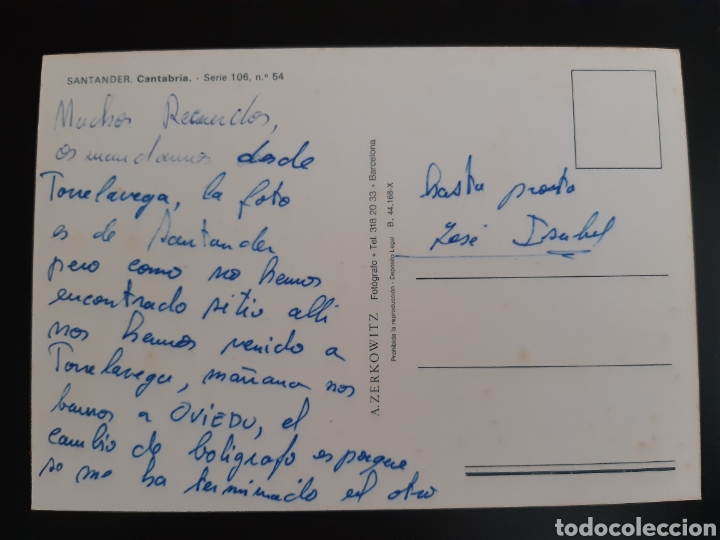 SANTANDER. Cantabria. - Serie 106, n.º 54
Muchos Recuerdos,
os mandamos desde
Torrelavega, la foto
es de Santander
pero como no hemos
encontrado sitio alli
nos hemos venido a
Torrelavega, mañana nos
bamos a OVIEDO, el
cambio de boligrafo es porque
se me ha terminado el otro
A. ZERKOWITZ Fotógrafo • Tel. 318 20 33 • Barcelona
Prohibida la reproducción - Depósito Legal B. 44.168-X
hasta pronto
José Isabel
todocoleccion.net